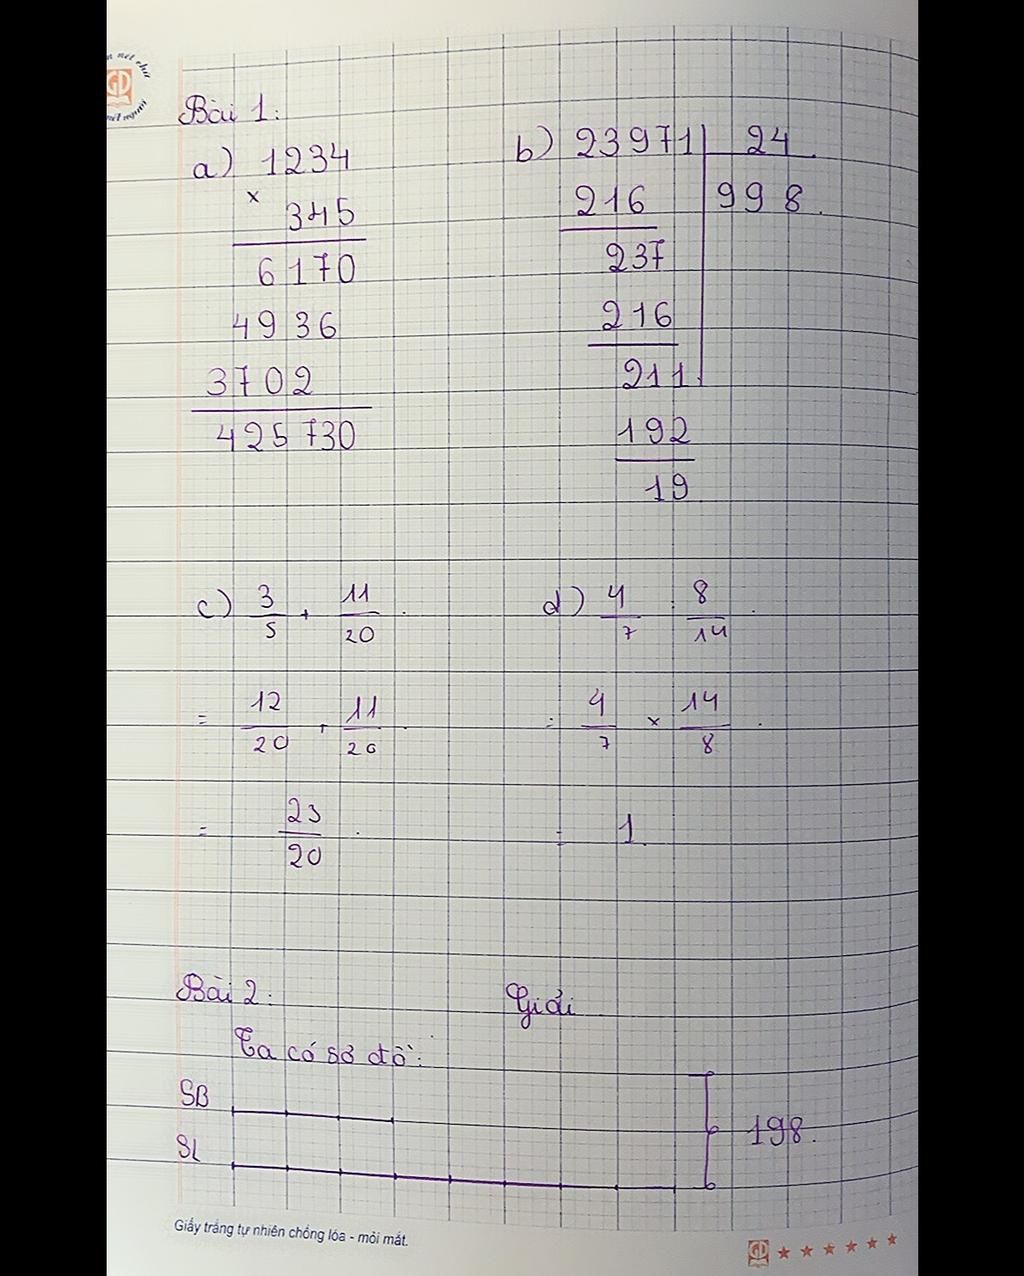 Bài 1:
a) 1234
× 345
6170
4936
3702
425730
b) 23971 24
216 998
237
216
211
192
19
c) 3/5 + 11/20
= 12/20 + 11/20
= 23/20
d) 4/7 : 8/14
= 4/7 × 14/8
= 1
Bài 2: Giải
Ta có sơ đồ:
SB
SL
198
Giấy trắng tự nhiên chống lóa - mỏi mắt.
GD